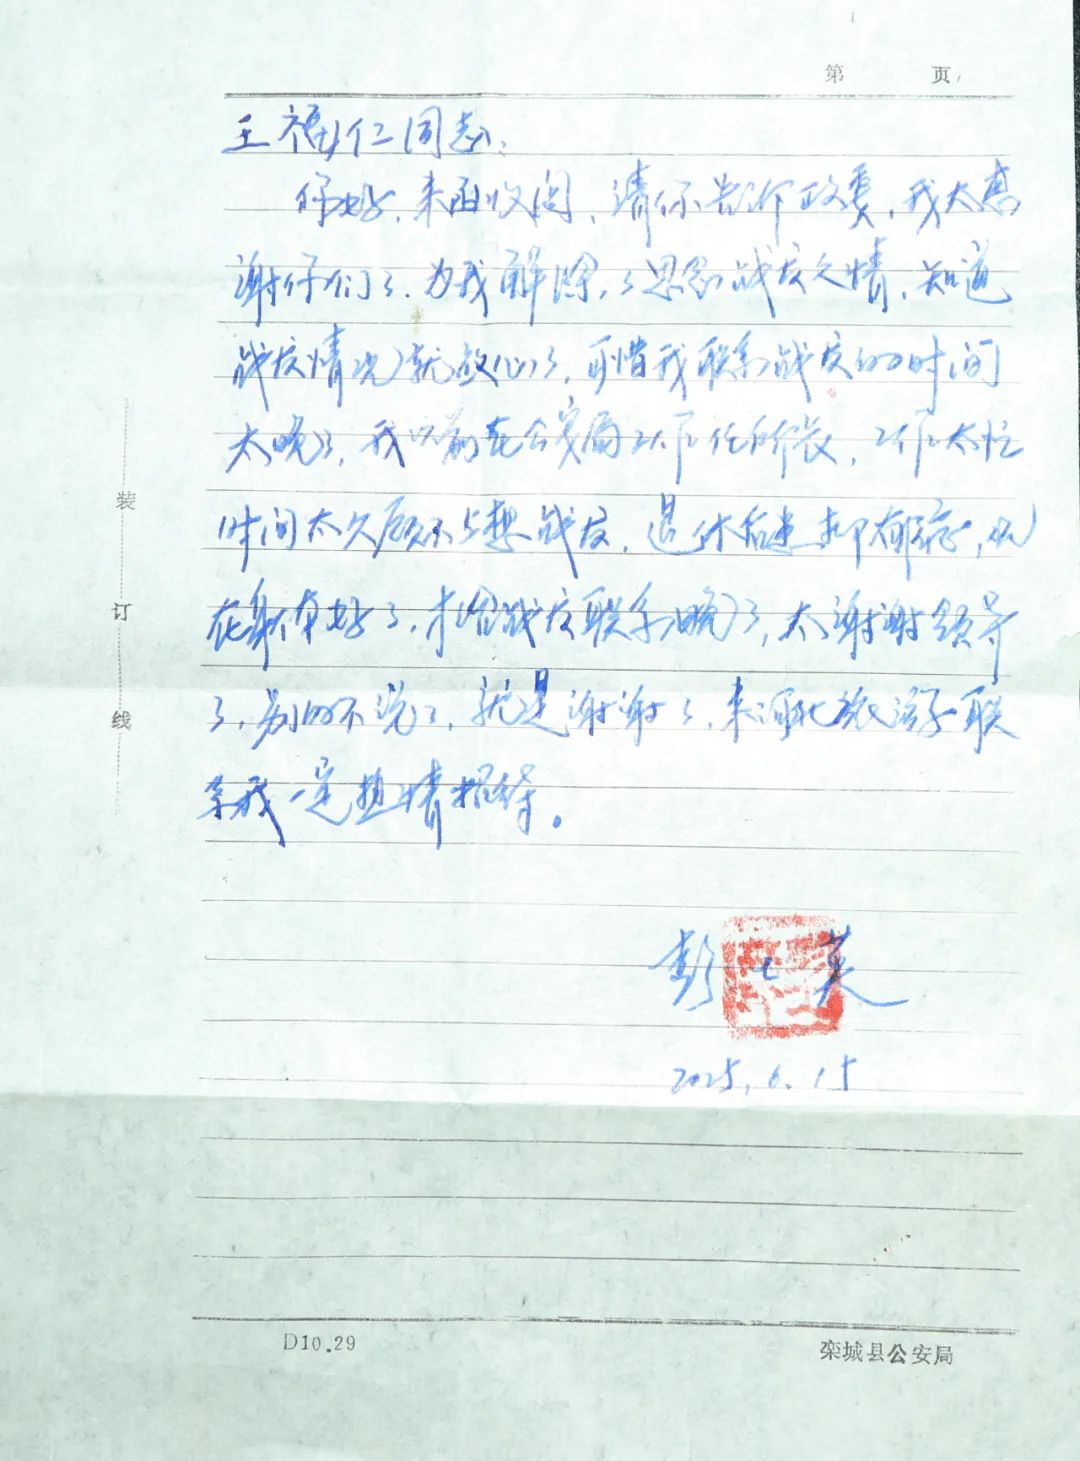 第 页
王福仁同志：
你好，来函收阅，请你告诉政委，我太感
谢你们了，为我解除了思念战友之情，知道
战友情况就放心了，可惜我联系战友的时间
太晚了，我以前在公安局工作任所长，工作太忙
时间太久顾不上想战友，退休后患抑郁症，现
在身体好了，才给战友联系晚了，太谢谢领导
了，别的不说了，就是谢谢了，来河北旅游联
系我一定热情招待。
彭 英
2025.6.15
装
订
线
D10.29
栾城县公安局